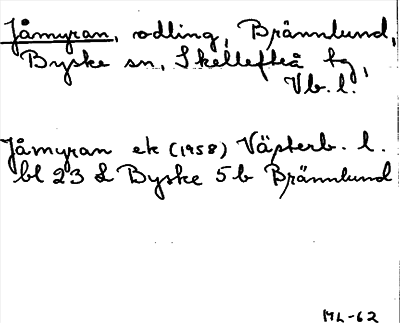 Jåmyran, odling, Brännlund,
Byske sn, Skellefteå tg,
Vb. l.
Jåmyran ek (1958) Västerb. l.
bl 23 L Byske 5b Brännlund
ML-62